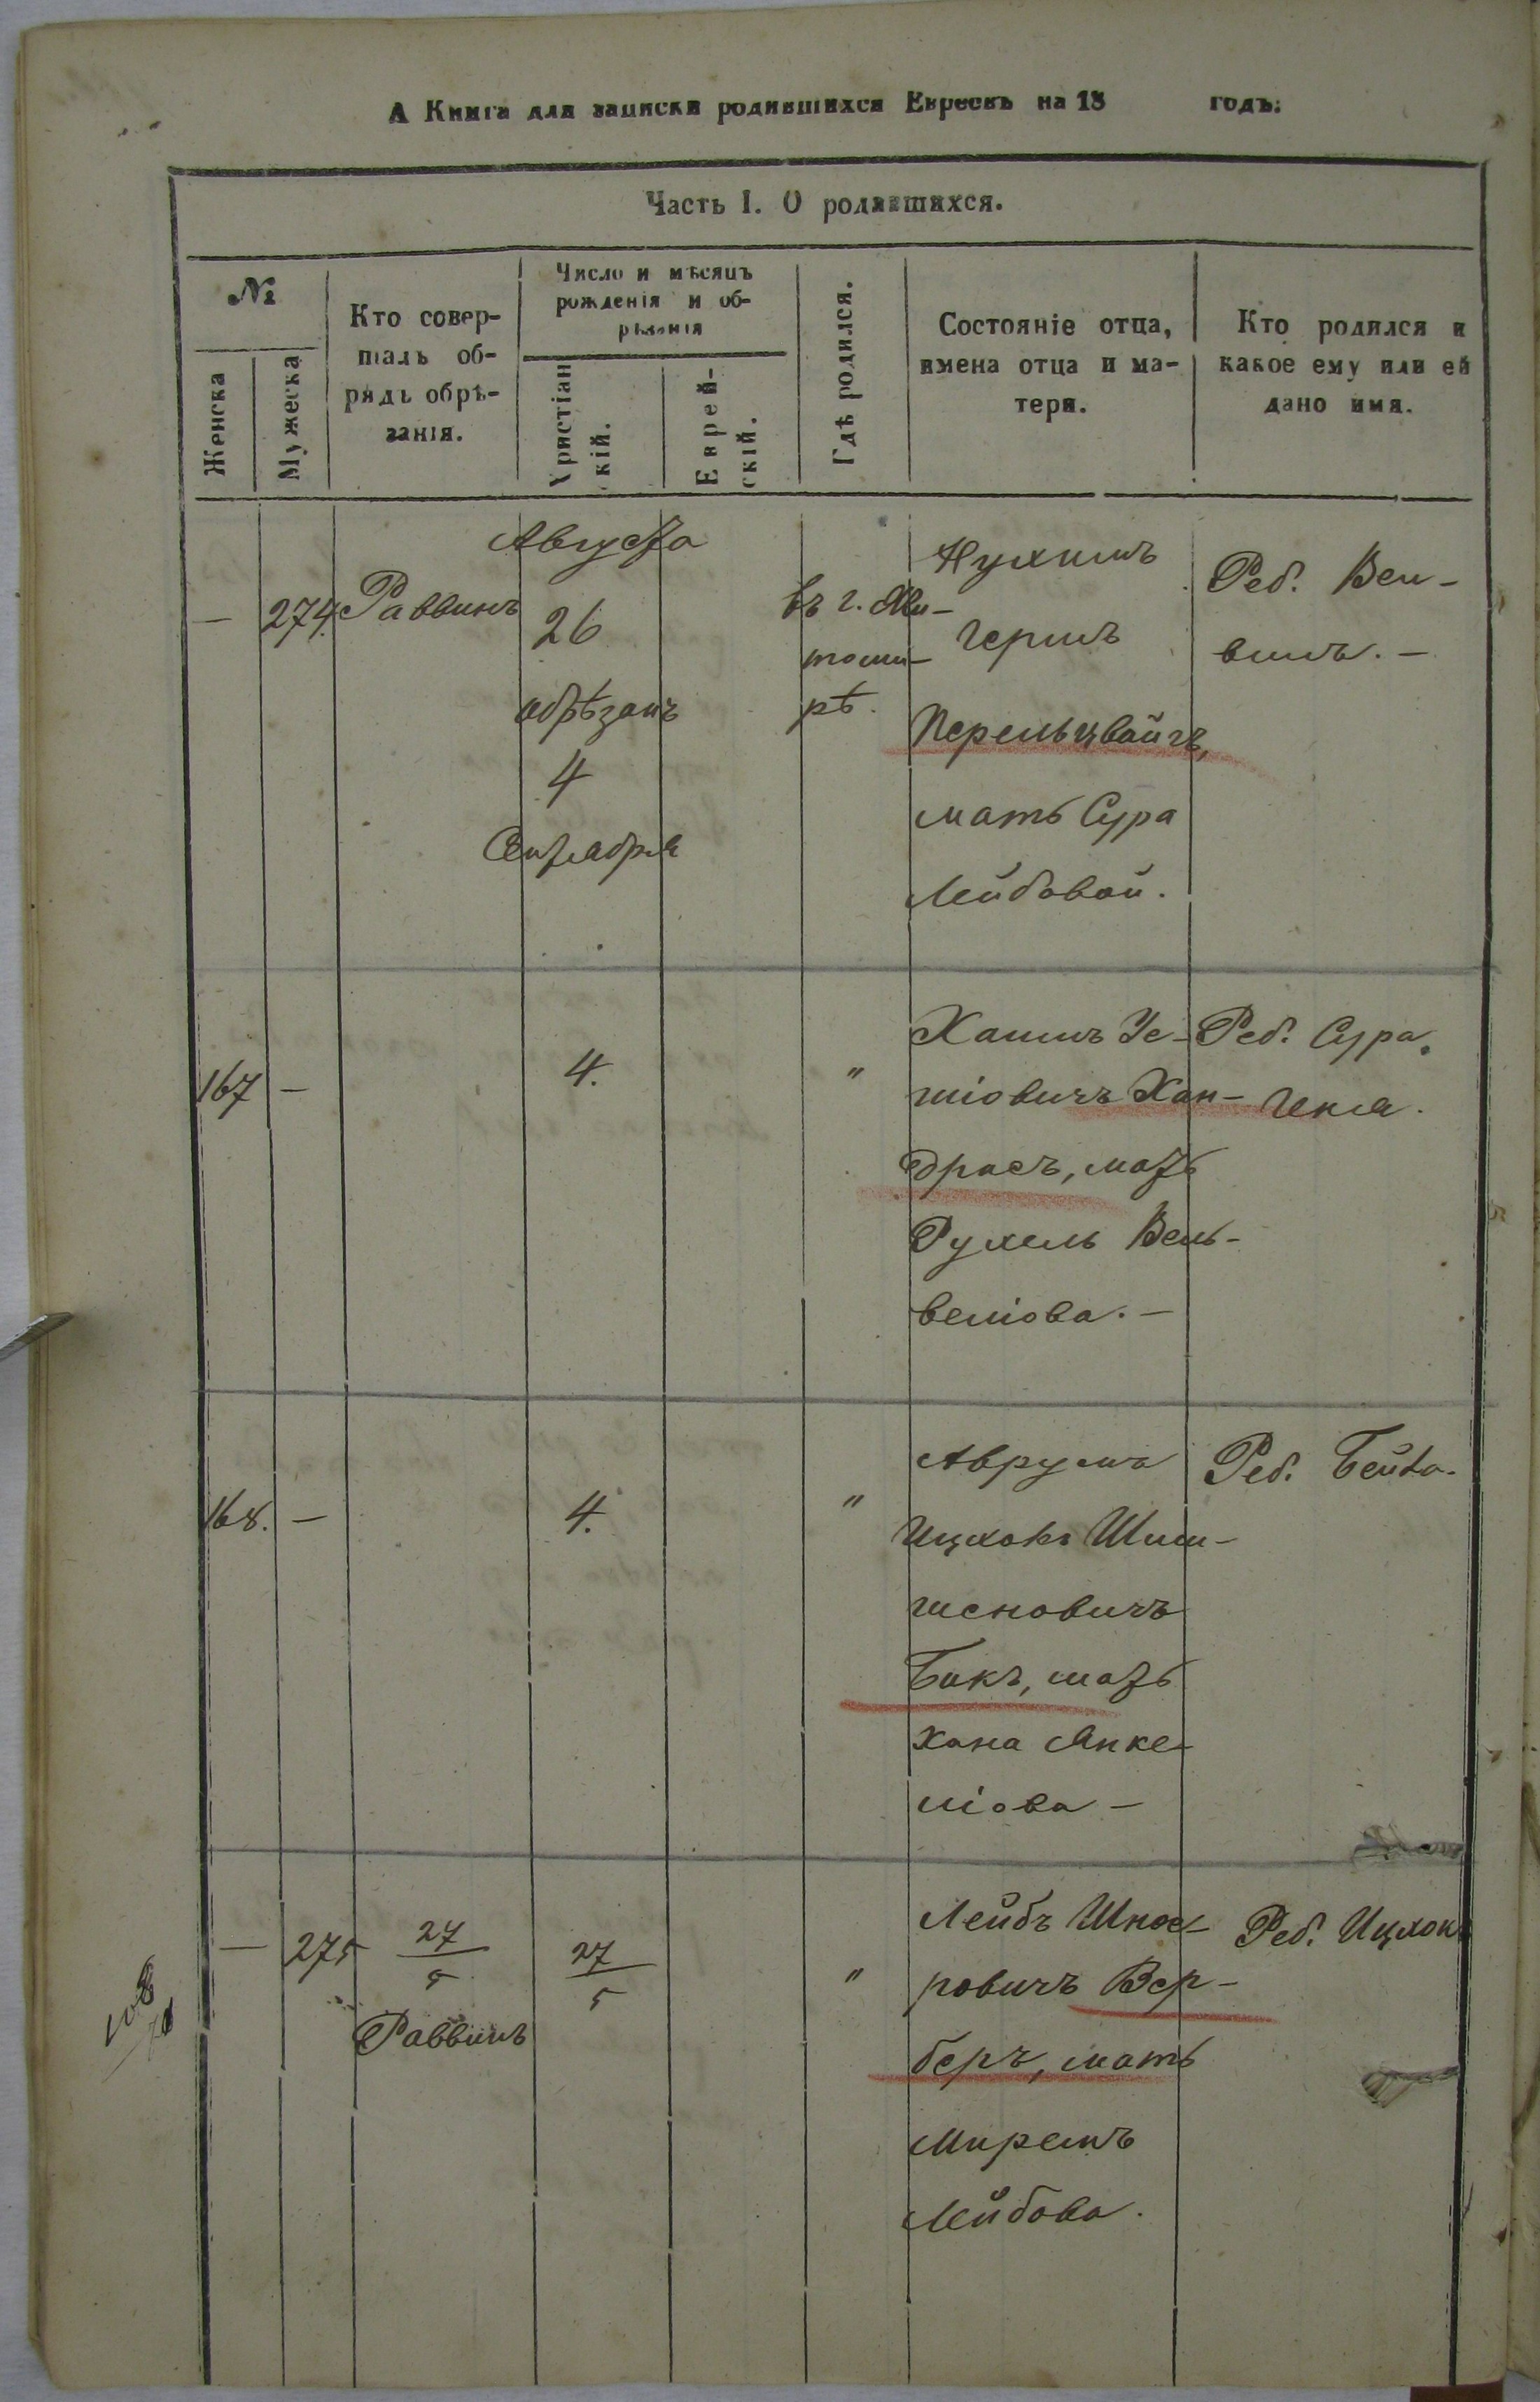 А Книга для записки родившихся Евреевъ на 18 годъ.
Часть I. О родившихся.
№
Женска
Мужеска
Кто совер-
шалъ об-
рядъ обрѣ-
занія.
Число и мѣсяцъ
рожденія и об-
рѣзанія
Христіан
скій.
Еврей-
скій.
Гдѣ родился.
Состояніе отца,
имена отца и ма-
тери.
Кто родился и
какое ему или ей
дано имя.
—
274.
Раввинъ
Августа
26
обрѣзанъ
4
Сентября
въ г. Жи-
томи-
рѣ.
Нухимъ
Гершъ
Перельцвайгъ,
мать Сура
Лейбовой.
Реб. Вель-
вель. —
167
—
4.
"
Хаимъ
шіовичъ Хан-
драсъ, мать
Рухель Вель-
веліова. —
Реб. Сура
Геня.
168.
—
4.
"
Аврумъ
Ицхокъ Шим-
шеновичъ
Бакъ, мать
Хана Янке-
ліова —
Реб. Бейла.
—
275
27
5
Раввинъ
27
5
"
Лейбъ Шнее-
ровичъ Вер-
беръ, мать
Лейбова.
Реб. Ицхокъ